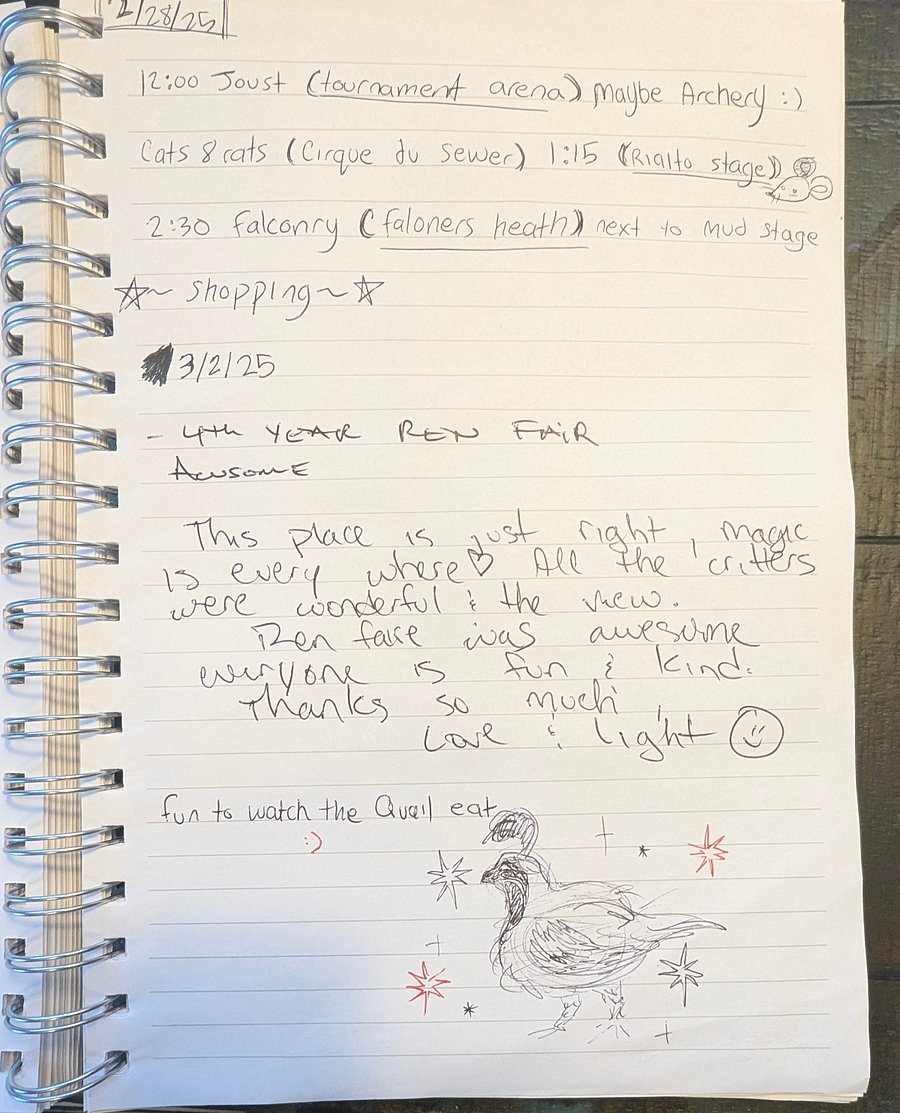 2/28/25
12:00 Joust (tournament arena) Maybe Archery :)
Cats & rats (Cirque du Sewer) 1:15 (Rialto stage)
2:30 Falconry (faloners heath) next to Mud Stage
☆~ shopping ~☆
3/2/25
- 4th YEAR REN FAIR
AWSOME
This place is just right, magic
is every where♡ All the critters
were wonderful & the view.
Ren faire was awesome
everyone is fun & kind.
Thanks so much,
Love & light ☺
fun to watch the Quail eat
:)